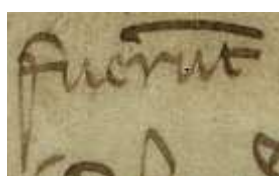 fuerut̅